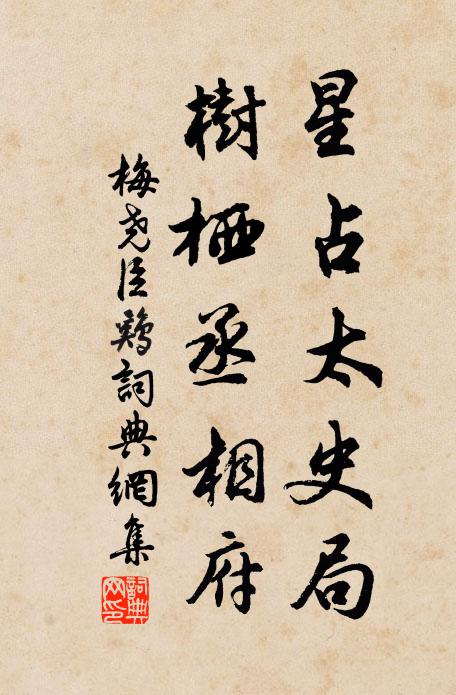 星占太史局
樹栖丞相府
梅尧臣鷄詞典網集
詞典